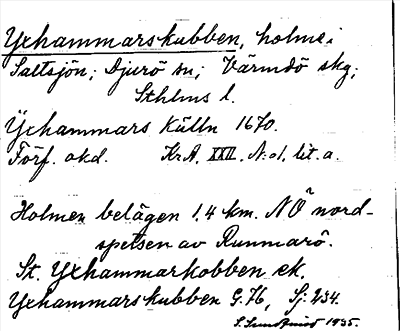 Yxhammarskubben, holme i
Saltsjön; Djurö sn; Värmdö skg;
Sthlms l.
Yxhammars Kulln 1670.
Förf. okd. Kr.A. XXII. N:o1. lit. a.
Holmen belägen 1,4 km. NÖ nord-
spetsen av Runmarö.
St. Yxhammarkobben ek.
Yxhammarskubben G. 76, Sj. 234.
S. Sundqvist 1935.